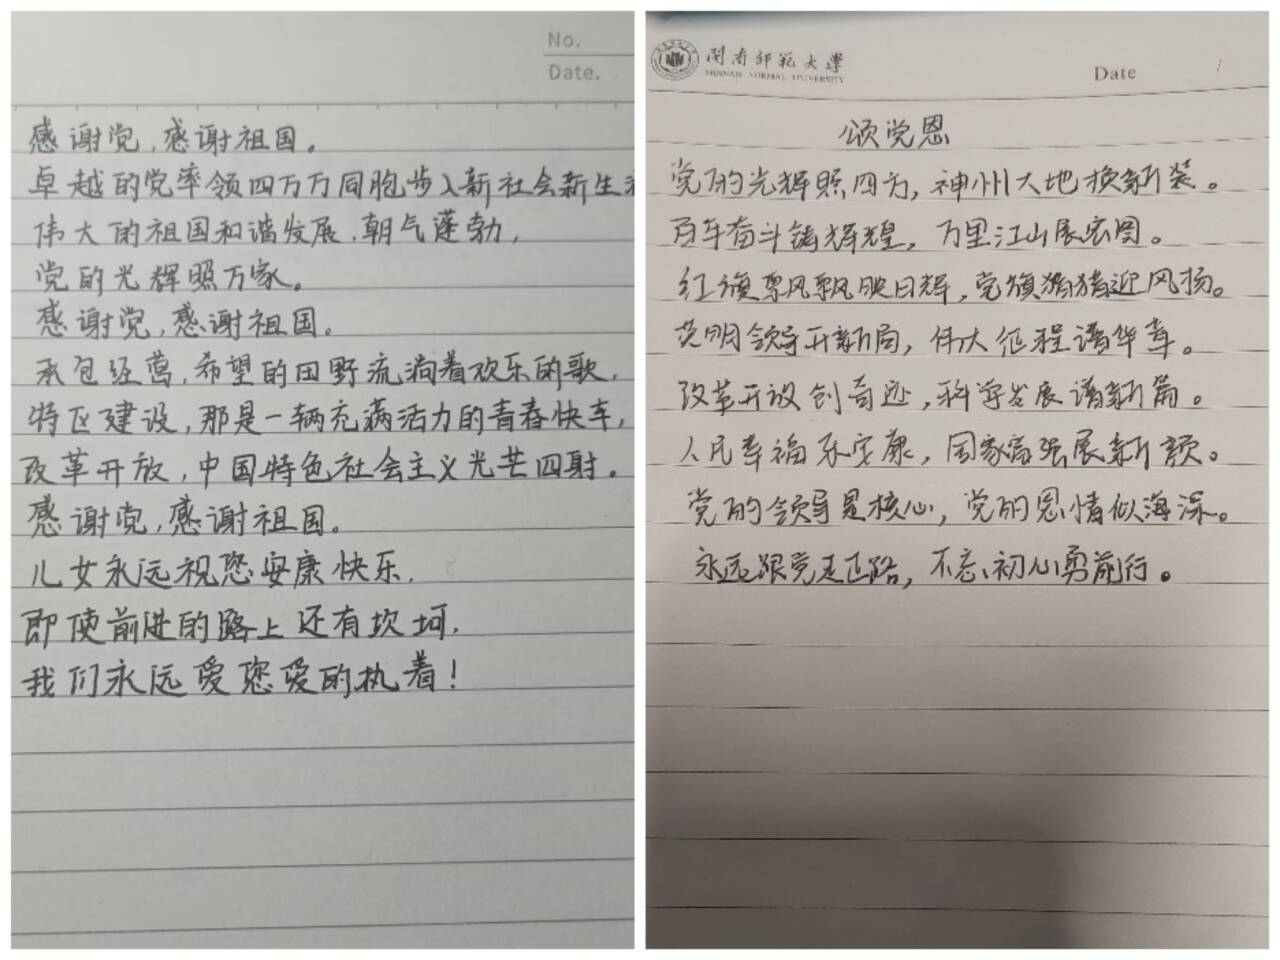 No.
Date.
感谢党,感谢祖国。
卓越的党率领四万万同胞步入新社会新生
伟大的祖国和谐发展,朝气蓬勃,
党的光辉照万家。
感谢党,感谢祖国。
承包经营,希望的田野流淌着欢乐的歌,
特区建设,那是一辆充满活力的青春快车,
改革开放,中国特色社会主义光芒四射。
感谢党,感谢祖国。
儿女永远视您安康快乐,
即使前进的路上还有坎坷,
我们永远爱您爱的执着!
闽南师范大学
MINNAN NORMAL UNIVERSITY
Date
颂党恩
党的光辉照四方,神州大地换新装。
百年奋斗铸辉煌,万里江山展宏图。
红旗飘飘映日辉,党旗猎猎迎风扬。
英明领导开新局,伟大征程谱华章。
改革开放创奇迹,科学发展谱新篇。
人民幸福乐安康,国家富强展新颜。
党的领导是核心,党的恩情似海深。
永远跟党走正路,不忘初心勇前行。